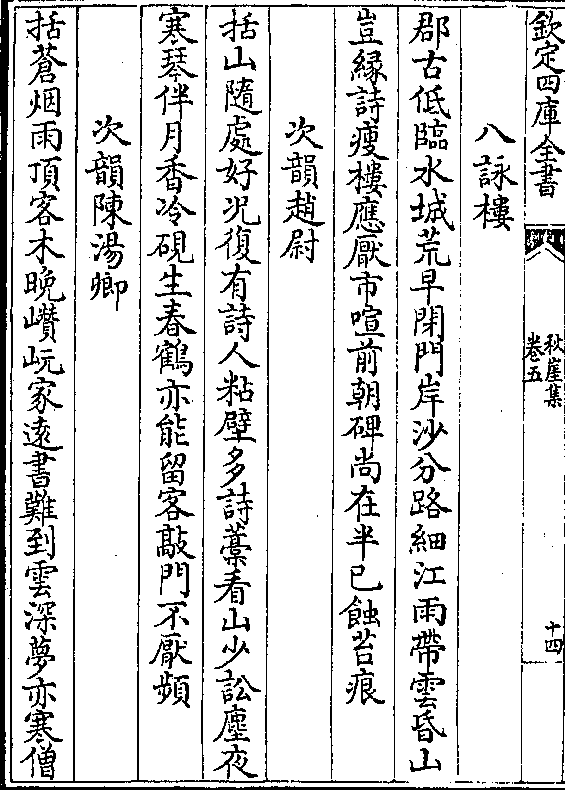 欽定四庫全書
秋崖集
卷五
十四
八詠樓
郡古低臨水城荒早閉門岸沙分路細江雨帶雲昏山
豈緣詩瘦樓應厭市喧前朝碑尚在半已蝕苔痕
次韻趙尉
括山隨處好況復有詩人粘壁多詩藁看山少訟塵夜
寒琴伴月香冷硯生春鶴亦能留客敲門不厭頻
次韻陳湯卿
括蒼烟雨頂客木晚巑岏家遠書難到雲深夢亦寒僧